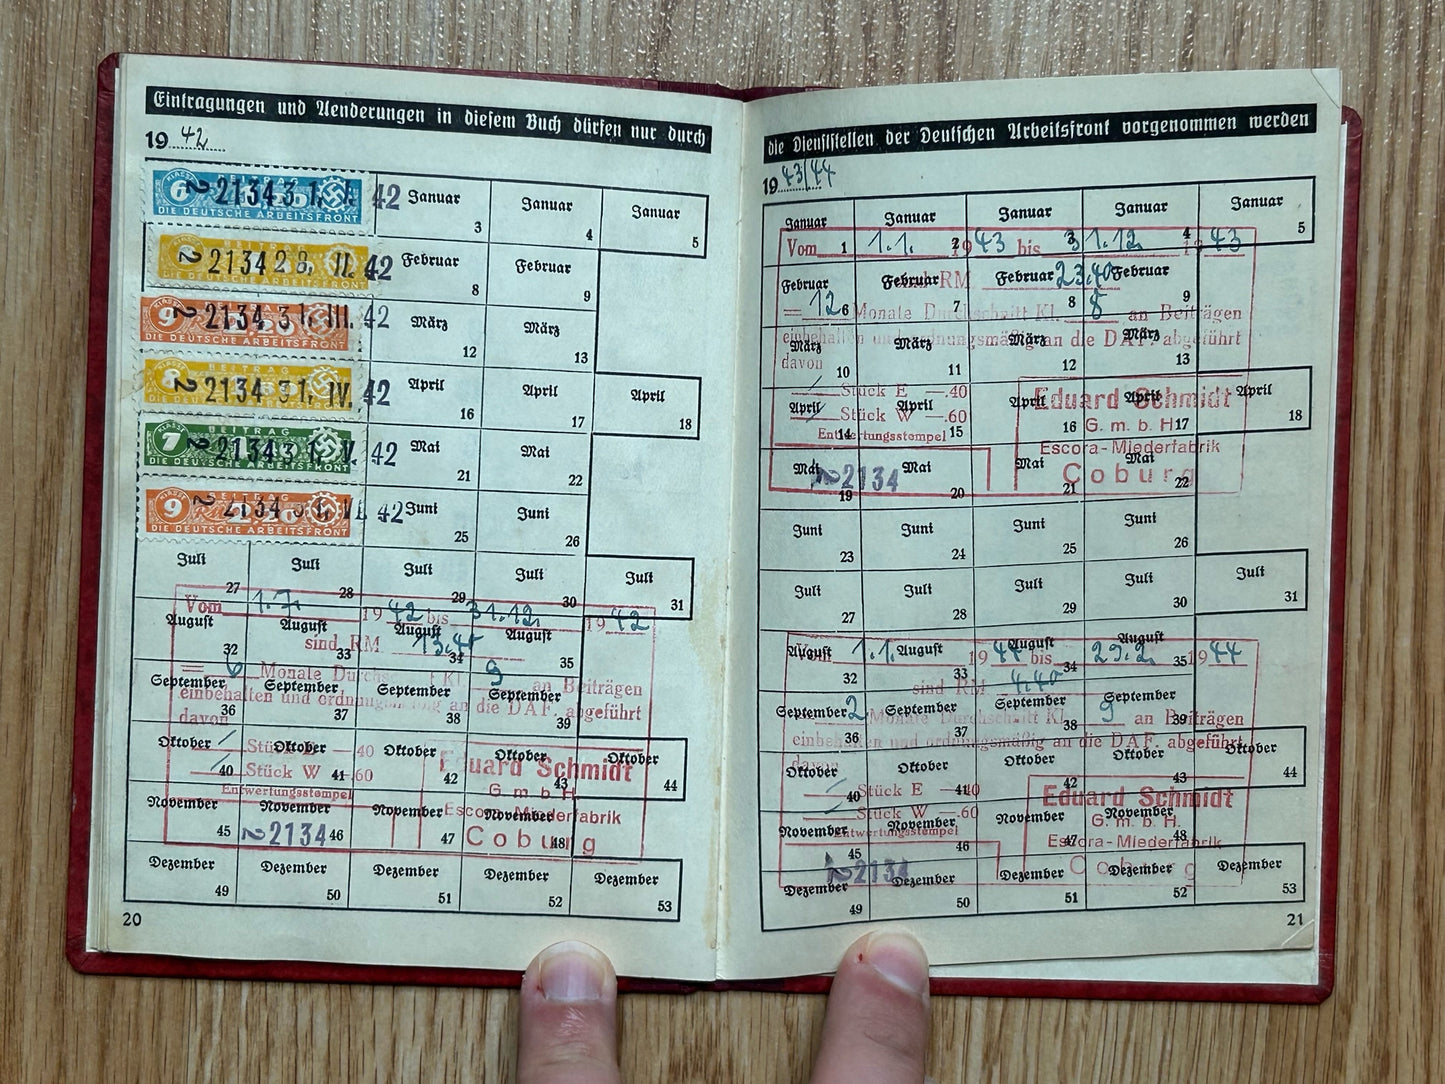 Eintragungen und Aenderungen in diesem Buch dürfen nur durch
1942
KLASSE 6 BEITRAG DIE DEUTSCHE ARBEITSFRONT
2134 31. I. 42
Januar 3 Januar 4 Januar 5
BEITRAG DIE DEUTSCHE ARBEITSFRONT
2134 28. II. 42
Februar 8 Februar 9
9 DIE DEUTSCHE ARBEITSFRONT
2134 31. III. 42
März 12 März 13
8 BEITRAG DIE DEUTSCHE ARBEITSFRONT
2134 31. IV. 42
April 16 April 17 April 18
KLASSE 7 BEITRAG DIE DEUTSCHE ARBEITSFRONT
2134 31. V. 42
Mai 21 Mai 22
KLASSE 9 BEITRAG DIE DEUTSCHE ARBEITSFRONT
2134 31. VI. 42
Juni 25 Juni 26
Juli 27 Juli 28 Juli 29 Juli 30 Juli 31
Vom 1.7. 1942 bis 31.12. 1942
August 32 August 33 August 34 August 35
sind RM
= 6 Monate 9 an Beiträgen
September 36 September 37 September 38 September 39
einbehalten und ordnungsmäßig an die DAF. abgeführt
davon
Oktober 40 Oktober 41 Oktober 42 Oktober 43 Oktober 44
Stück E —.40
Stück W —.60
Entwertungsstempel
Eduard Schmidt
G. m. b. H.
Escora-Miederfabrik
Coburg
November 45 November 46 November 47 November 48
2134
Dezember 49 Dezember 50 Dezember 51 Dezember 52 Dezember 53
20
die Dienststellen der Deutschen Arbeitsfront vorgenommen werden
1943/44
Januar 1 Januar 2 Januar 3 Januar 4 Januar 5
Vom 1.1. 1943 bis 31.12. 1943
Februar 6 Februar 7 Februar 8 Februar 9
RM 23.40
= 12 Monate Durchschnitt Kl. 8 an Beiträgen
einbehalten und ordnungsmäßig an die DAF. abgeführt
März 10 März 11 März 12 März 13
davon
Stück E —.40
Stück W —.60
April 14 April 15 April 16 April 17 April 18
Entwertungsstempel
Eduard Schmidt
G. m. b. H.
Escora-Miederfabrik
Coburg
Mai 19 Mai 20 Mai 21 Mai 22
2134
Juni 23 Juni 24 Juni 25 Juni 26
Juli 27 Juli 28 Juli 29 Juli 30 Juli 31
Vom 1.1. 1944 bis 29.2. 1944
August 32 August 33 August 34 August 35
sind RM 4.40
2 Monate Durchschnitt Kl. 9 an Beiträgen
September 36 September 37 September 38 September 39
einbehalten und ordnungsmäßig an die DAF. abgeführt
davon
Oktober 40 Oktober 41 Oktober 42 Oktober 43 Oktober 44
Stück E —.40
Stück W —.60
Entwertungsstempel
Eduard Schmidt
G. m. b. H.
Escora-Miederfabrik
Coburg
November 45 November 46 November 47 November 48
2134
Dezember 49 Dezember 50 Dezember 51 Dezember 52 Dezember 53
21